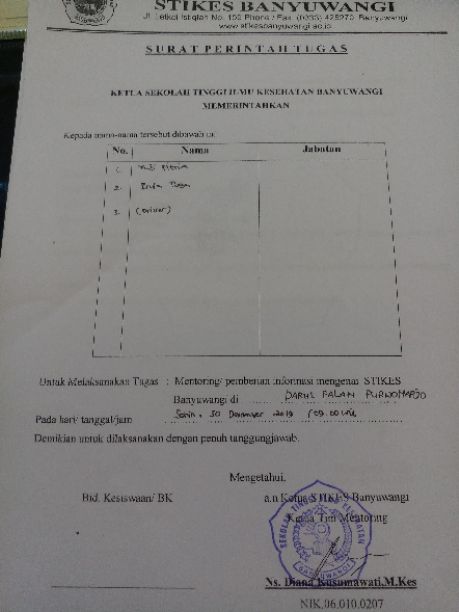 STIKES BANYUWANGI
Jl. Letkol Istiqlah No. 109 Phone / Fax. (0333) 425270 Banyuwangi
www.stikesbanyuwangi.ac.id
SURAT PERINTAH TUGAS
KETUA SEKOLAH TINGGI ILMU KESEHATAN BANYUWANGI
MEMERINTAHKAN
Kepada nama-nama tersebut dibawah ini
No. Nama Jabatan
1.
2.
3. (Driver)
Untuk Melaksanakan Tugas : Mentoring/ pemberian informasi mengenai STIKES
Banyuwangi di DARUL FALAH PURWOHARJO
Pada hari/ tanggal/jam Senin, 30 Desember 2019
Demikian untuk dilaksanakan dengan penuh tanggungjawab.
Mengetahui,
Bid. Kesiswaan/ BK a.n Ketua STIKES Banyuwangi
Ketua Tim Mentoring
SEKOLAH TINGGI ILMU KESEHATAN
BANYUWANGI
Ns. Diana Kusumawati,M.Kes
NIK.06.010.0207